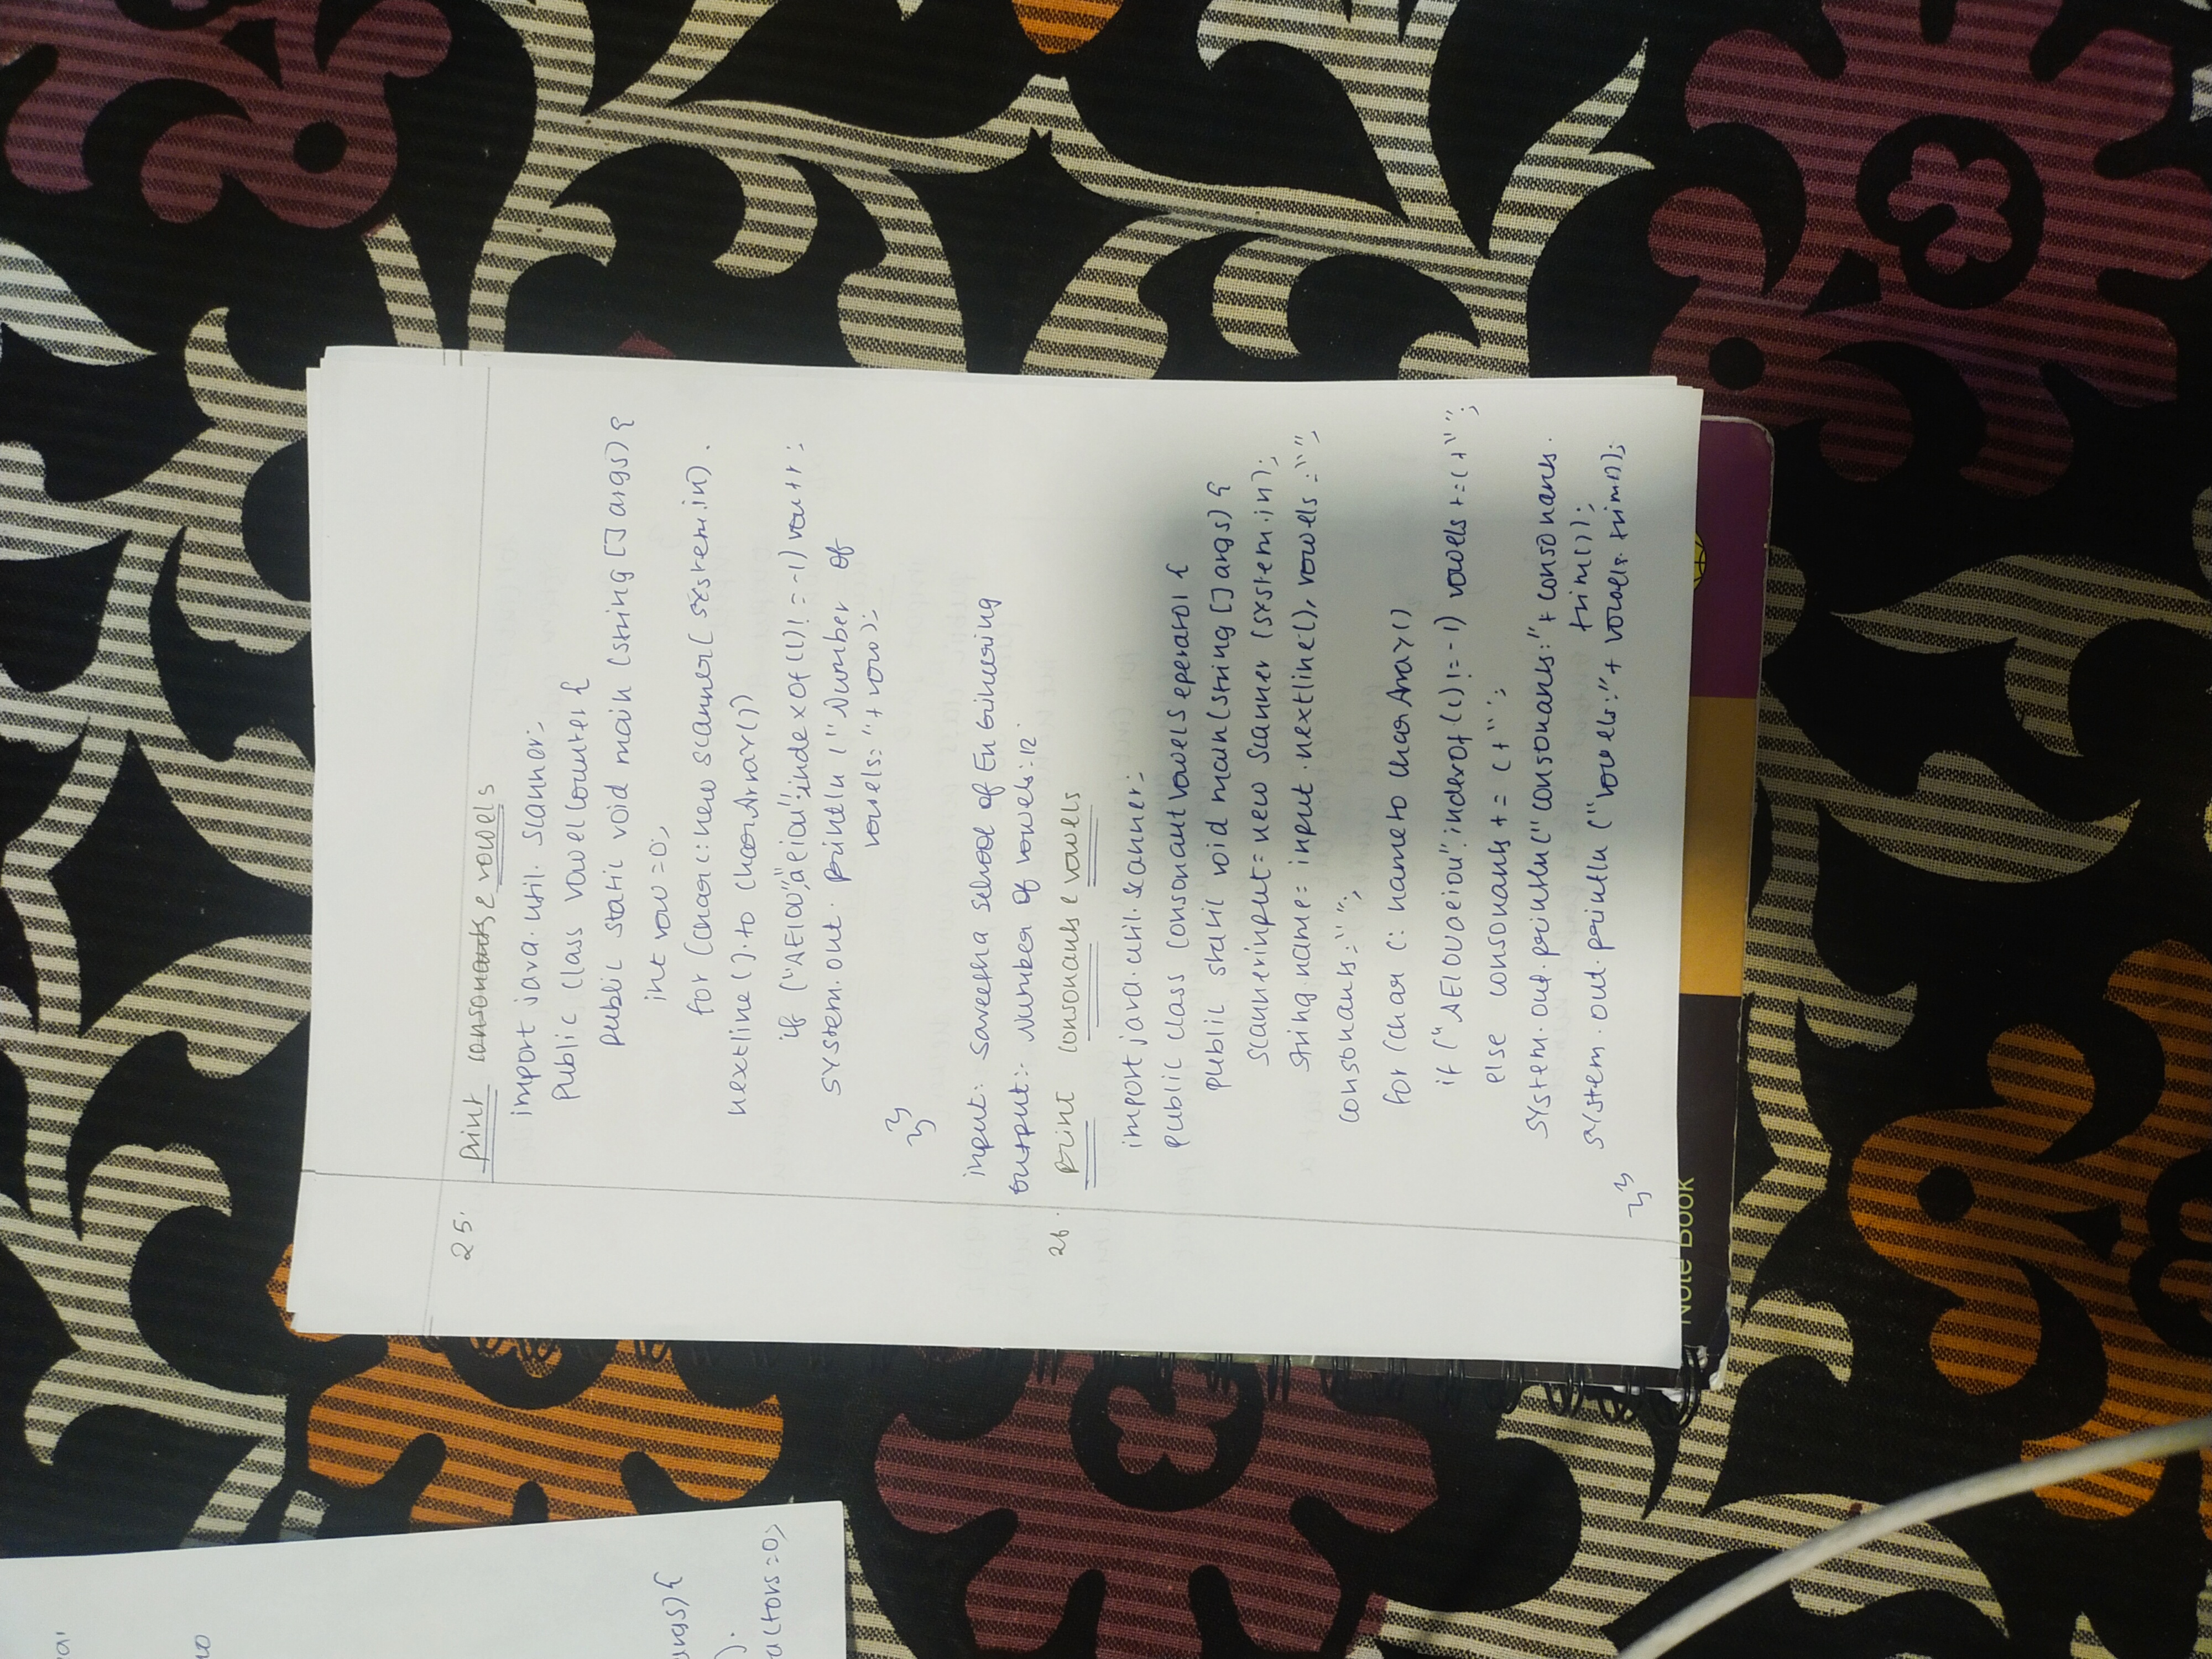 args) {
).
actors=0;
25. print consonants & vowels
import java.util.scanner;
public class vowelcounter {
public static void main (string [] args) {
int vow = 0;
for (char c: new scanner( system.in).
nextline().to charArray())
if ("AEIOU","aeiou".indexOf(c)! = -1) vow++;
system.out.println ("Number of
vowels: "+ vow);
}}
input: Saveetha School of EnGineering
output:- Number of vowels:12
26. print consonants & vowels
import java.util.scanner;
public class consonantvowelseperator {
public static void main(string [] args) {
scannerinput= new scanner (system.in);
string name= input.nextline(), vowels = "",
consonants: " ";
for (char c: nameto charArray()
if ("AEIOUaeiou".indexOf(c)!=-1) vowels +=c+" ";
else consonants += c+" ";
system.out.println(" consonants:"+ consonants.
trim());
system.out.println ("vowels:"+ vowels.trim());
}}
Note Book